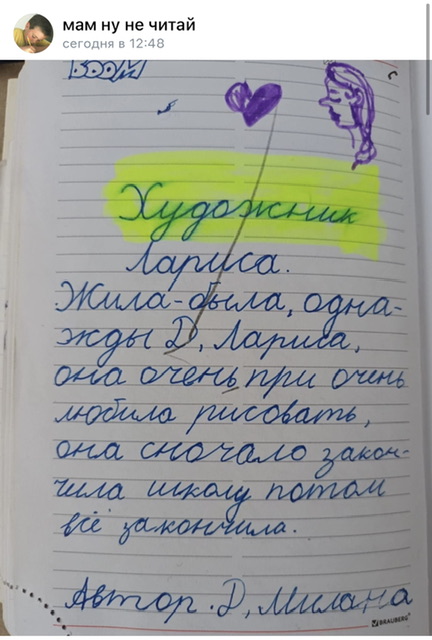 мам ну не читай
сегодня в 12:48
BOOM
Художник
Лариса.
Жила-была, одна-
жды Д, Лариса,
она очень, при очень
любила рисовать,
она сночало закон-
чила школу потом
всё закончила.
Автор. Д, Милана
BRAUBERG